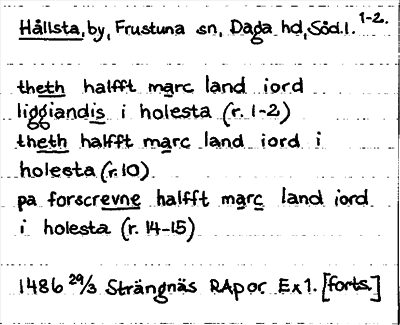 Hållsta, by, Frustuna sn, Daga hd, Söd.l. 1-2.
theth halfft marc land iord
liggiandis i holesta (r. 1-2)
theth halfft marc land iord i
holesta (r. 10)
pa forscrevne halfft marc land iord
i holesta (r. 14-15)
1486 29/3 Strängnäs RAp or Ex 1. [forts.]